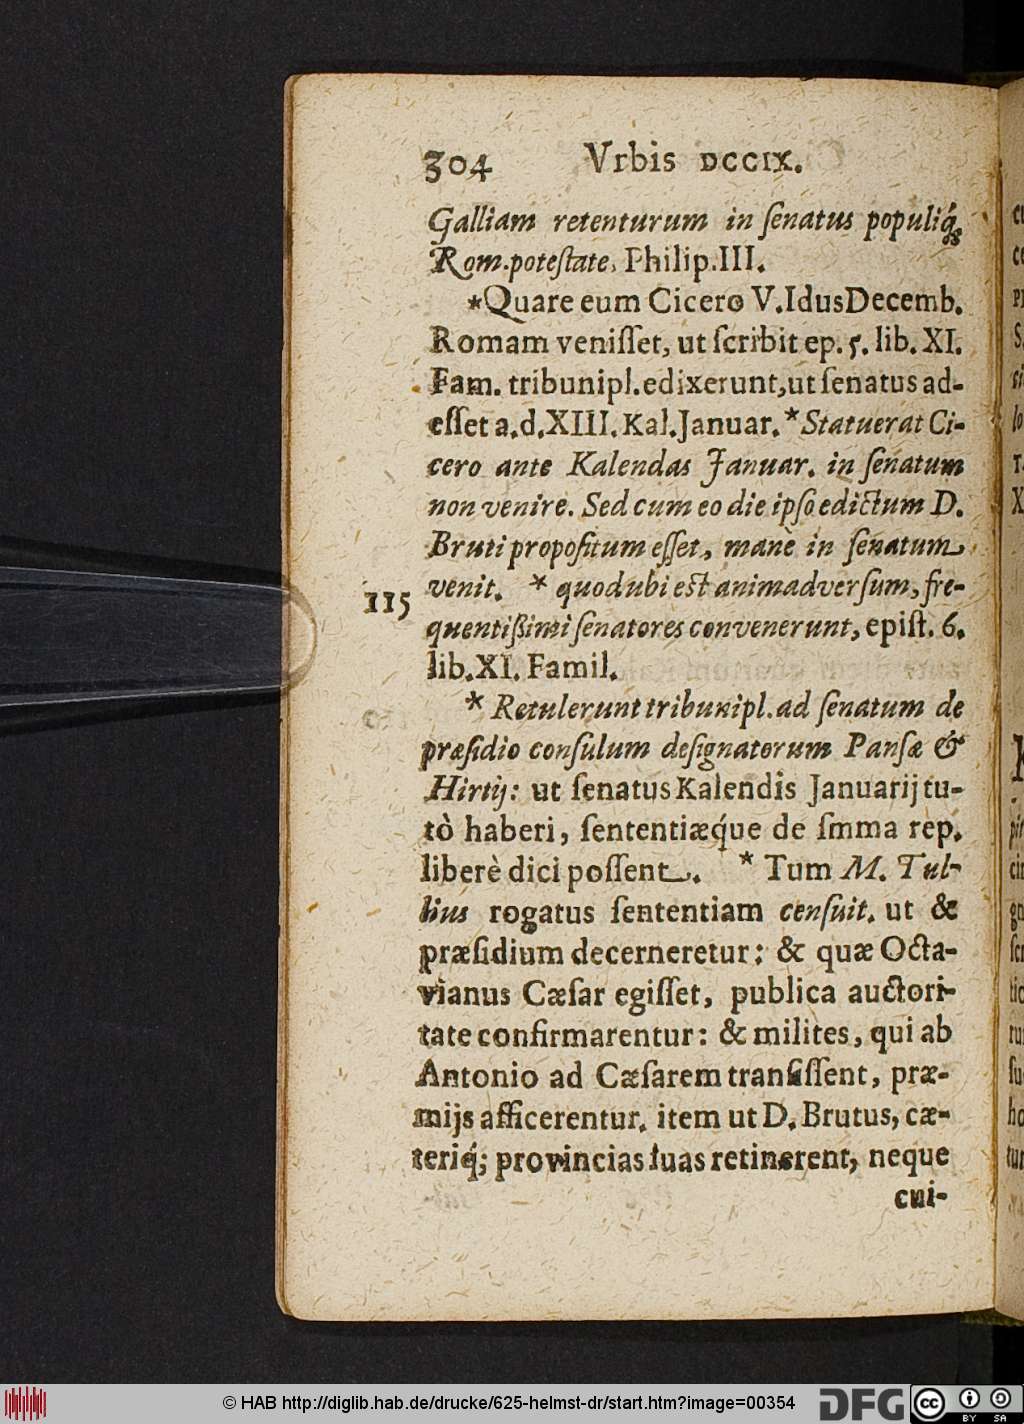 304 Vrbis DCCIX.
Galliam retenturum in ſenatus populiq́;
Rom.poteſtate, Philip.III.
*Quare eum Cicero V.Idus Decemb.
Romam veniſſet, ut ſcribit ep. 5. lib. XI.
Fam. tribunipl.edixerunt,ut ſenatus ad-
eſſet a.d.XIII. Kal.Januar. *Statuerat Ci-
cero ante Kalendas Januar. in ſenatum
non venire. Sed cum eo die ipſo edictum D.
Bruti propoſitum eſſet, manè in ſenatum
115 venit. * quod ubi est animadverſum, fre-
quentißimi ſenatores convenerunt, epiſt. 6.
lib.XI. Famil.
* Retulerunt tribunipl.ad ſenatum de
præſidio conſulum deſignatorum Panſæ &
Hirtij: ut ſenatus Kalendis Januarij tu-
tò haberi, ſententiæq́ue de ſmma rep.
liberè dici poſſent. * Tum M. Tul-
lius rogatus ſententiam cenſuit. ut &
præſidium decerneretur: & quæ Octa-
vianus Cæſar egiſſet, publica auctori-
tate confirmarentur: & milites, qui ab
Antonio ad Cæſarem tranſiſſent, præ-
mijs afficerentur. item ut D. Brutus, cæ-
teriq́; provincias ſuas retinerent, neque
cui-
© HAB http://diglib.hab.de/drucke/625-helmst-dr/start.htm?image=00354
DFG
cc
BY SA